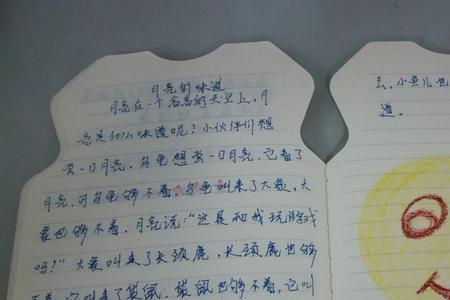 月亮的味道
月亮在一个高高的天空上，月
亮是什么味道呢？小伙伴们想
尝一口月亮，乌龟想尝一口月亮，它看了
月亮，可乌龟够不着，乌龟叫来了大象，大
象也够不着，月亮说：“这是和我玩游戏
吗！”大象叫来了长颈鹿，长颈鹿也够
不着，它叫来了袋鼠，袋鼠也够不着，它叫
去，小鱼儿也
道。